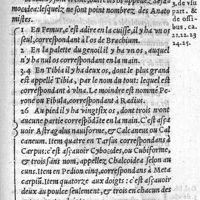 mocdea: lesquelz ne sont point nombrez des Anato
mistes.
1 En Femur, c'est adire en la cuisse, il y ha vn os
seul, correspondant à l'os de Brachium.
2 En la palette du genoil il y ha vn os, auquel
n'y ha nul os correspondant en la main.
3.4 En Tibia il y ha deux os, dont le plus grand
est appellé Tibia, par le nom du tout: lequel est
correspondant à vlna. Le moindre est Perone ou
Fossile, correspondant à Radius.
5.6 Au pied il y ha vingtsix os, dont trois wont
aucune partie correspõdãte en la main. C'est as-
auoir Astragalus nauiforme, & Calcaneus ou Cal
caneum. Item quatre en Tarsus correspondans à
Carpus: c'est asauoir Cyboides, ou Cubiforme,
& trois sans nom, appellez Chalcoidea selon au
cuns. Item en Pedion cinq, correspondans à Meta
carpiũ. Item quatorze aux doigts: c'est asauoir
deux au poulce seulement, & trois en chacun des
3. de vsu
part. &
de ossi-
bus. ca.
21.22.23
24.25.